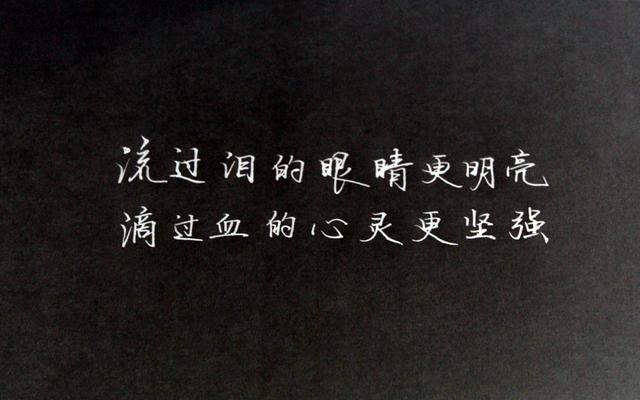 流过泪的眼睛更明亮
滴过血的心灵更坚强